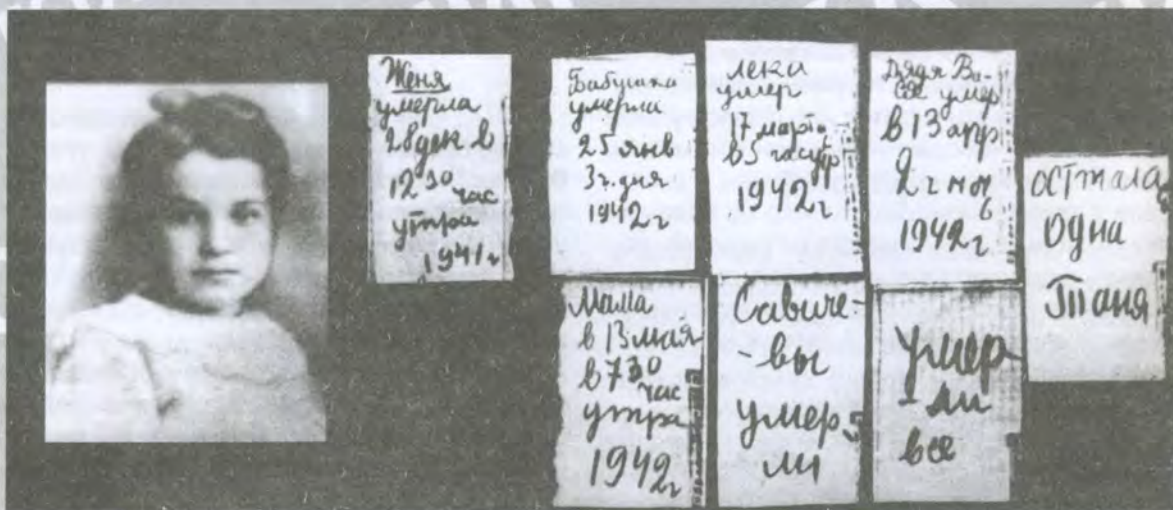 Женя
умерла
28 дек в
12 30 час
утра
1941 г
Бабушка
умерла
25 янв
3 ч. дня
1942 г
Лека
умер
17 марта
в 5 час утр
1942 г
Дядя Ва-
ся умер
в 13 апр
2 ч ночь
1942 г
Мама
в 13 мая
в 7 30 час
утра
1942 г
Савиче-
-вы
умер
ли
Умер
-ли
все
остала
одна
Таня